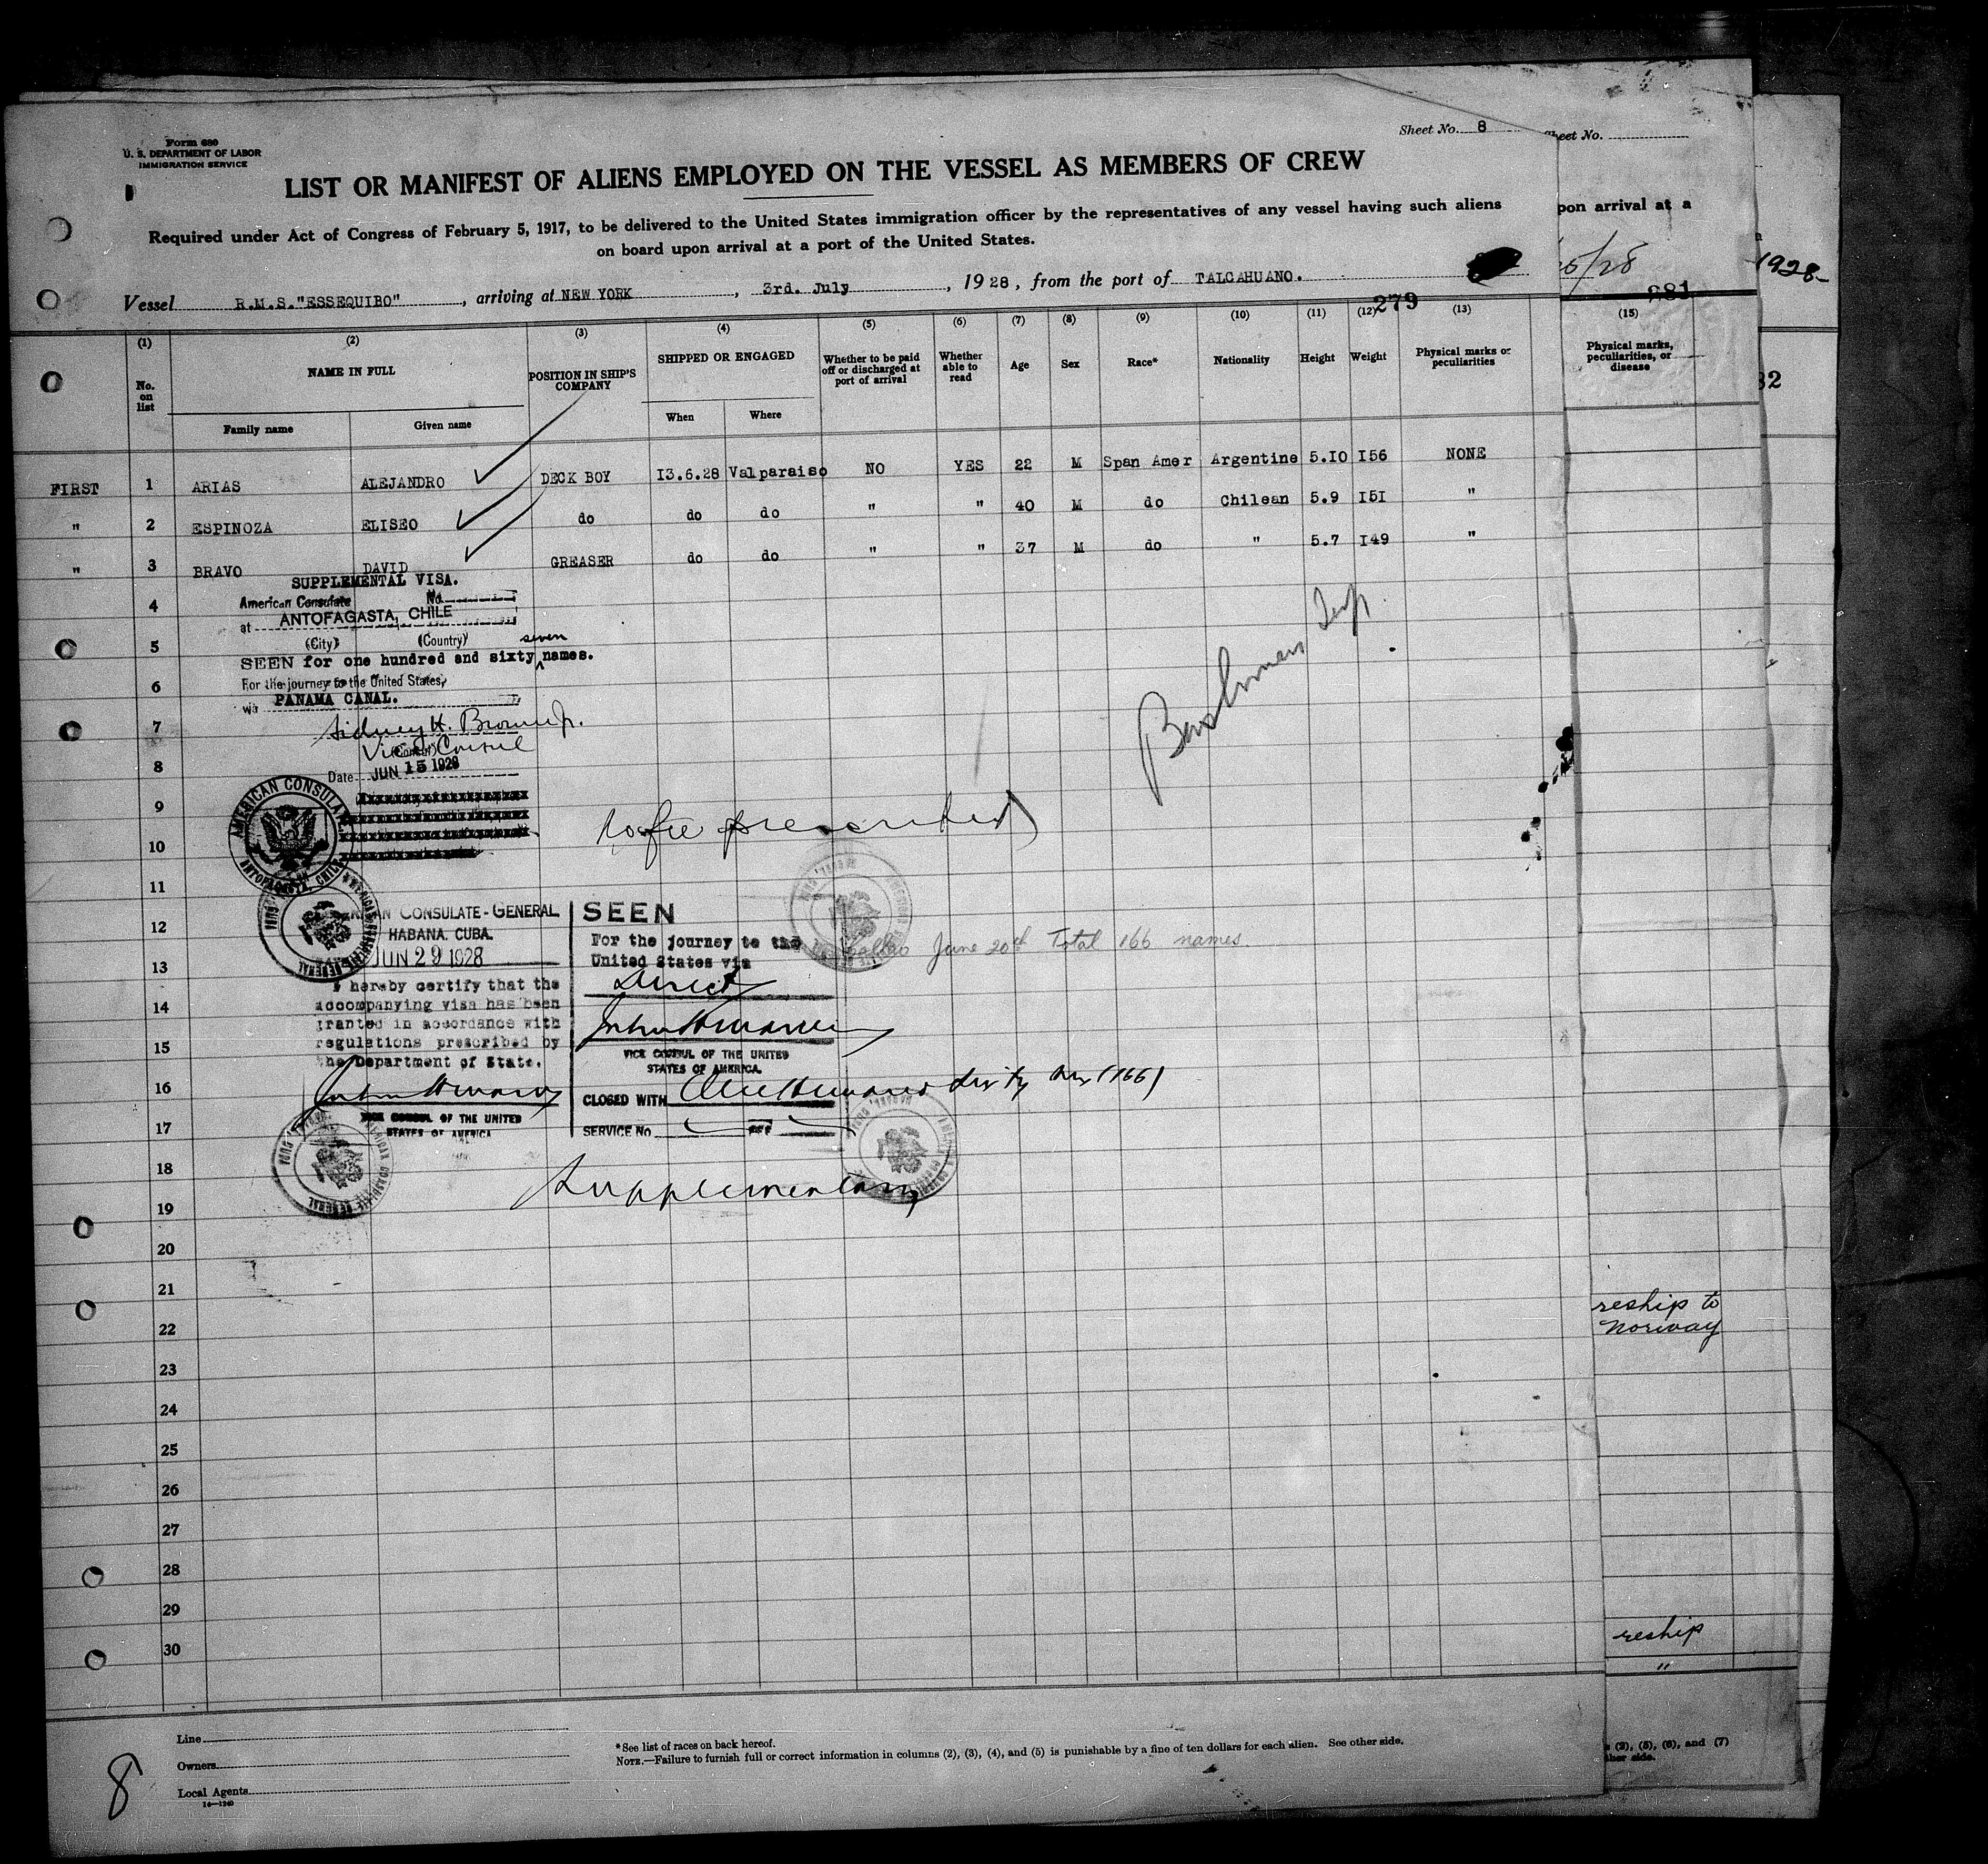 Form 680
U. S. DEPARTMENT OF LABOR
IMMIGRATION SERVICE
Sheet No. 8
Sheet No.
LIST OR MANIFEST OF ALIENS EMPLOYED ON THE VESSEL AS MEMBERS OF CREW
Required under Act of Congress of February 5, 1917, to be delivered to the United States immigration officer by the representatives of any vessel having such aliens
on board upon arrival at a port of the United States.
pon arrival at a
1928-
Vessel R.M.S."ESSEQUIBO", arriving at NEW YORK, 3rd. July, 1928, from the port of TALCAHUANO.
279
681
32
(1) (2) (3) (4) (5) (6) (7) (8) (9) (10) (11) (12) (13) (15)
No. on list
NAME IN FULL
Family name Given name
POSITION IN SHIP'S COMPANY
SHIPPED OR ENGAGED
When Where
Whether to be paid off or discharged at port of arrival
Whether able to read
Age Sex Race* Nationality Height Weight
Physical marks or peculiarities
Physical marks, peculiarities, or disease
FIRST 1 ARIAS ALEJANDRO DECK BOY 13.6.28 Valparaiso NO YES 22 M Span Amer Argentine 5.10 156 NONE
" 2 ESPINOZA ELISEO do do do " " 40 M do Chilean 5.9 151 "
" 3 BRAVO DAVID GREASER do do " " 37 M do " 5.7 149 "
SUPPLEMENTAL VISA.
4
American Consulate No.
at ANTOFAGASTA, CHILE
5
(City) (Country)
seven
SEEN for one hundred and sixty names.
6
For the journey to the United States,
via PANAMA CANAL.
7
Sidney H. Brown Jr.
Vice Consul
(Consul)
8
Date JUN 15 1928
AMERICAN CONSULATE
ANTOFAGASTA, CHILE
9
no fee prescribed
10
11
12
AMERICAN CONSULATE-GENERAL
HABANA. CUBA.
JUN 29 1928
13
I hereby certify that the
accompanying visa has been
granted in accordance with
regulations prescribed by
the Department of State.
14
15
16
VICE CONSUL OF THE UNITED
STATES OF AMERICA
17
SEEN
For the journey to the
United States via
Direct
VICE CONSUL OF THE UNITED
STATES OF AMERICA.
CLOSED WITH One Hundred sixty six (166)
SERVICE No.
Callao June 20th Total 166 names.
18
Supplementary
19
20
21
22
23
24
25
26
27
28
29
30
reship to
Norway
reship
"
Line
Owners
Local Agents
14—1240
*See list of races on back hereof.
NOTE.—Failure to furnish full or correct information in columns (2), (3), (4), and (5) is punishable by a fine of ten dollars for each alien. See other side.
(2), (5), (6), and (7)
ther side.
8